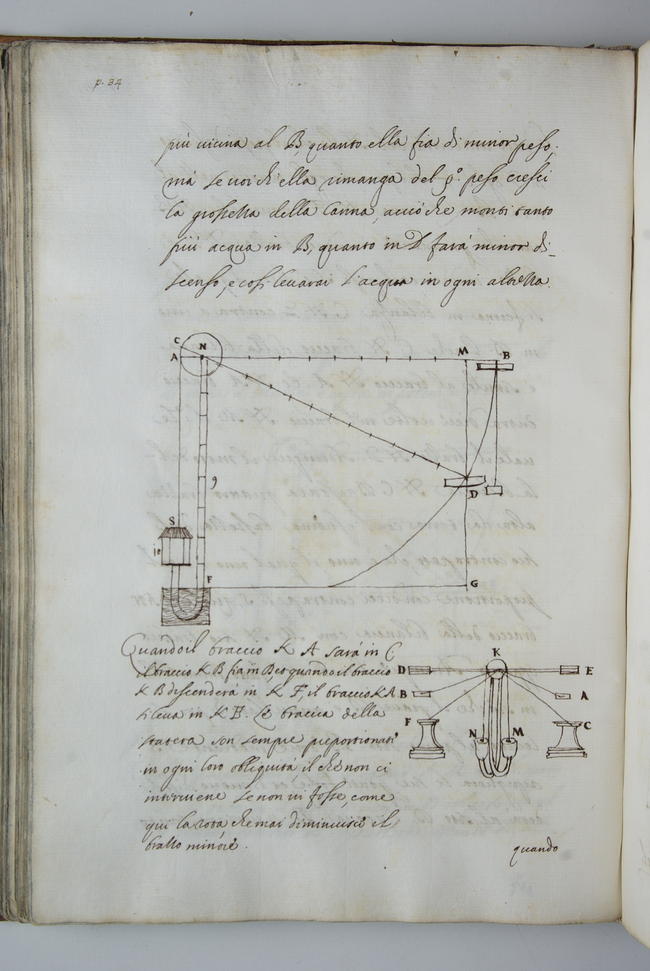 p. 34
più uicina al B, quanto ella fia di minor peso.
mà se uoi ch'ella rimanga del p.º peso cresci
la grossezza della Canna, acciò che monti tanto
più acqua in B, quanto in D farà minor di-
scenso, e cosi leuarai l'acqua in ogni altezza.
C N
A M B
9 D
S
10
F G
Quando il braccio K A sarà in C
il braccio K B fia in B et quando il braccio
K B descenderà in K F, il braccio K A
si leua in K E. Le braccia della
statera son sempre proportionati
in ogni loro obliquità, il che non ci
interuiene se non ui fosse, come
qui la rota che mai diminuisce il
bratto minore.
K
D E
B A
F C
N M
quando